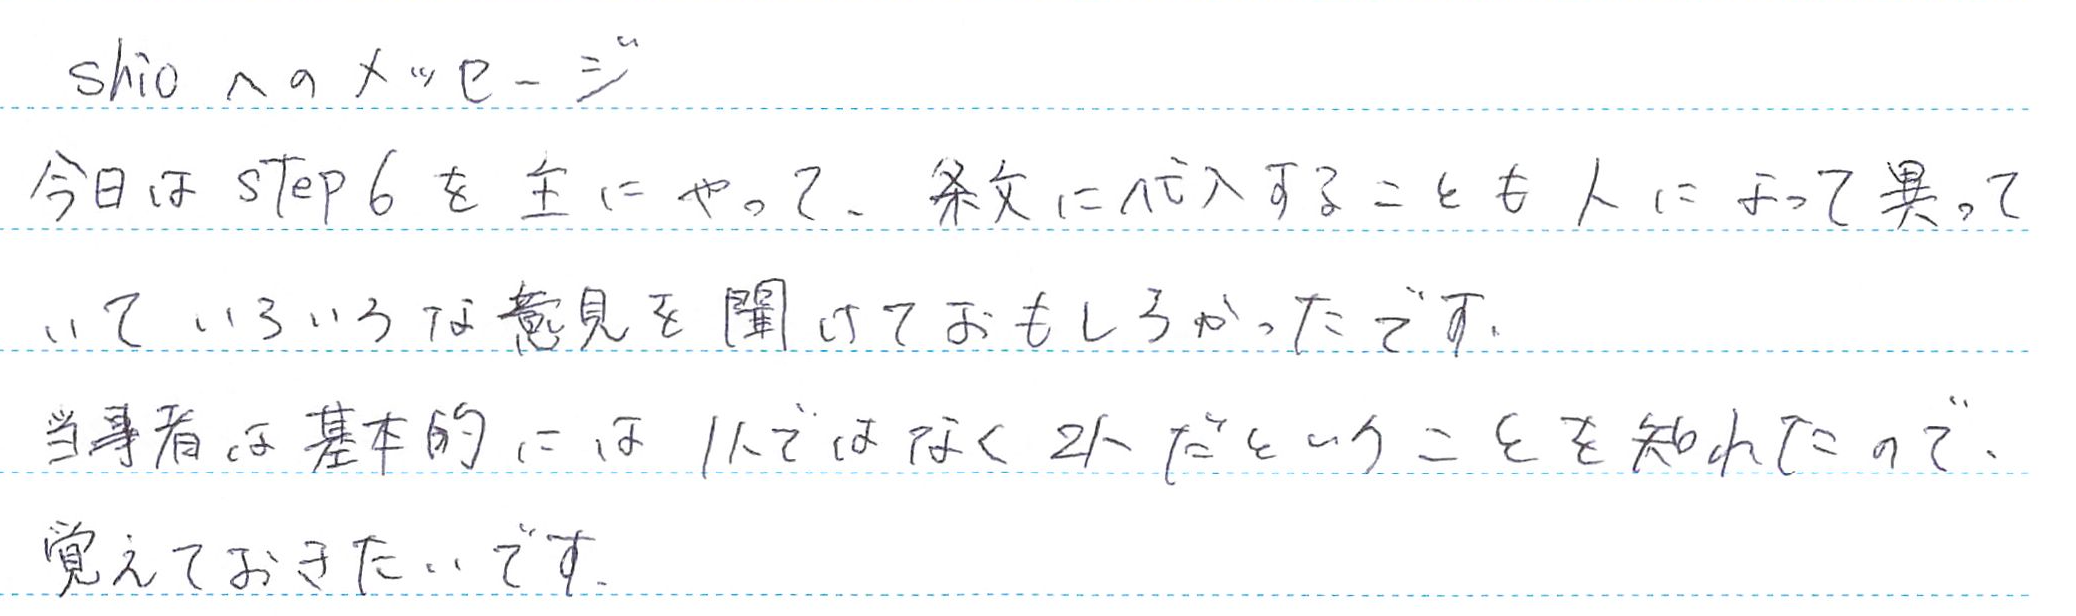 shioへのメッセージ
今日はstep6を主にやって、条文に代入することも人によって異って
いていろいろな意見を聞けておもしろかったです。
当事者は基本的には1人ではなく2人だということを知れたので、
覚えておきたいです。